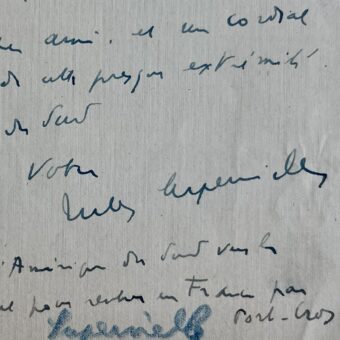 ami, et un cordial
de cette presque extrémité
du Sud
Votre
Jules Supervielle
l'Amérique du Sud vers le
pour rester en France par
Supervielle Port-Cros